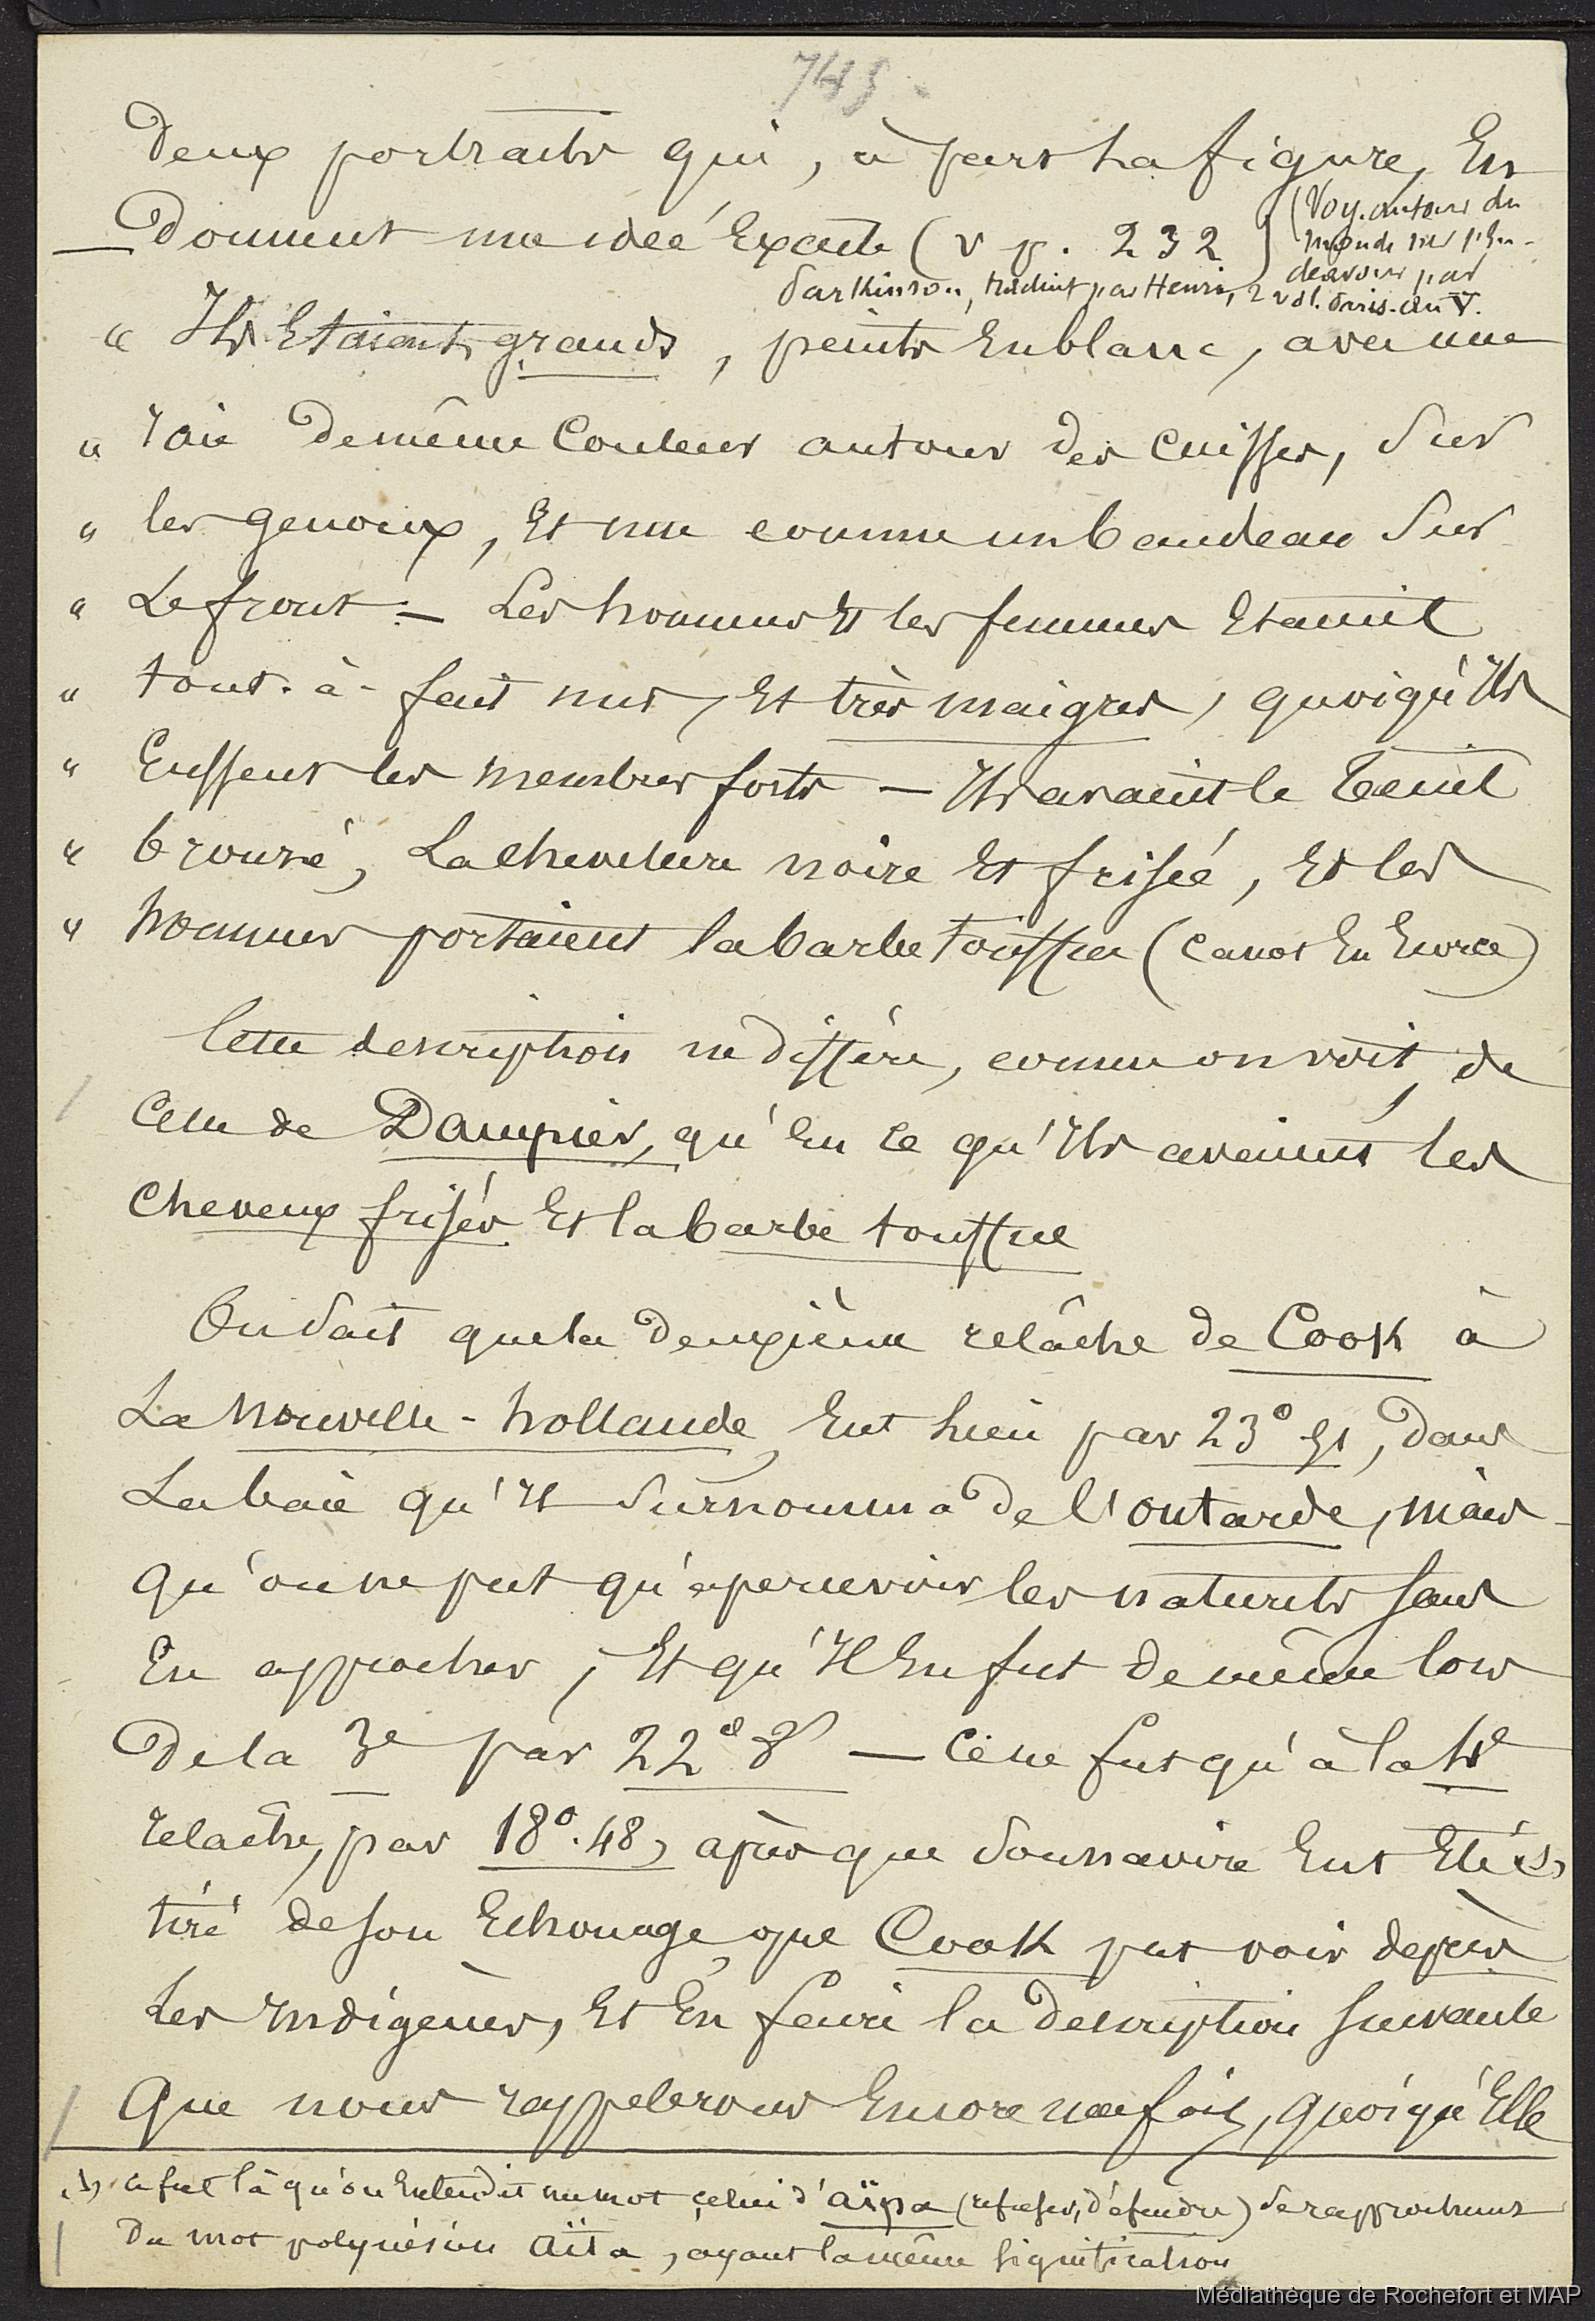 745.
Deux portraits qui, à part la figure, En
Donnent une idée Exacte (v p. 232) (Voy. autour du
monde sur l'En-
deavour par
Parkinson, traduit par Henri, 2 vol. Paris. an V.
« Ils Etaient grands, peints En blanc, avec une
« raie de même Couleur autour des cuisses, Sur
« les genoux, Et une comme un bandeau Sur
« Le front. — Les hommes Et les femmes Etaient
« tout-à-fait nus, Et très maigres, quoiqu'Ils
« Eussent les membres forts — Ils avaient le teint
« bronzé, La chevelure noire Et frisée, Et les
« hommes portaient la barbe touffue (Canot En Ecorce)
Cette description ne diffère, comme on voit, de
Celle de Dampier, qu'En ce qu'Ils avaient les
Cheveux frisés Et la barbe touffue
On Sait que la Deuxième relâche de Cook à
La Nouvelle-hollande, Eut lieu par 23° Et, Dans
La baie qu'Il Surnomma de l'outarde, mais
qu'on ne put qu'apercevoir les naturels sans
En approcher, Et qu'Il En fut de même lors
De la 3e par 22° — Ce ne fut qu'à la 4e
relâche, par 18°.48, après que Son navire Eut Eté (1)
tiré de son Echouage, que Cook put voir de près
Les Indigènes, Et En faire la Description suivante
Que nous rappelerons Encore une fois, quoiqu'Elle
(1) ce fut là qu'on Entendit un mot celui d'aïpa (refuser, défendre) se rapprochant
Du mot polynésien aïta, ayant la même signification
Médiathèque de Rochefort et MAP